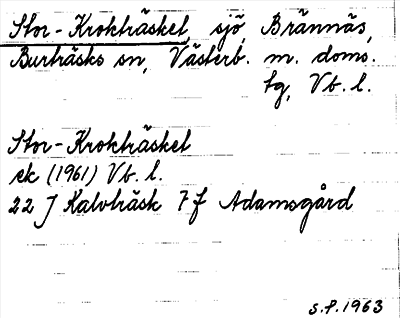 Stor-Krokträsket, sjö, Brännäs,
Burträsks sn, Västerb. m. doms.
tg, Vb. l.
Stor-Krokträsket
ek (1961) Vb. l.
22 J Kalvträsk 7 f Adamsgård
S.P. 1963